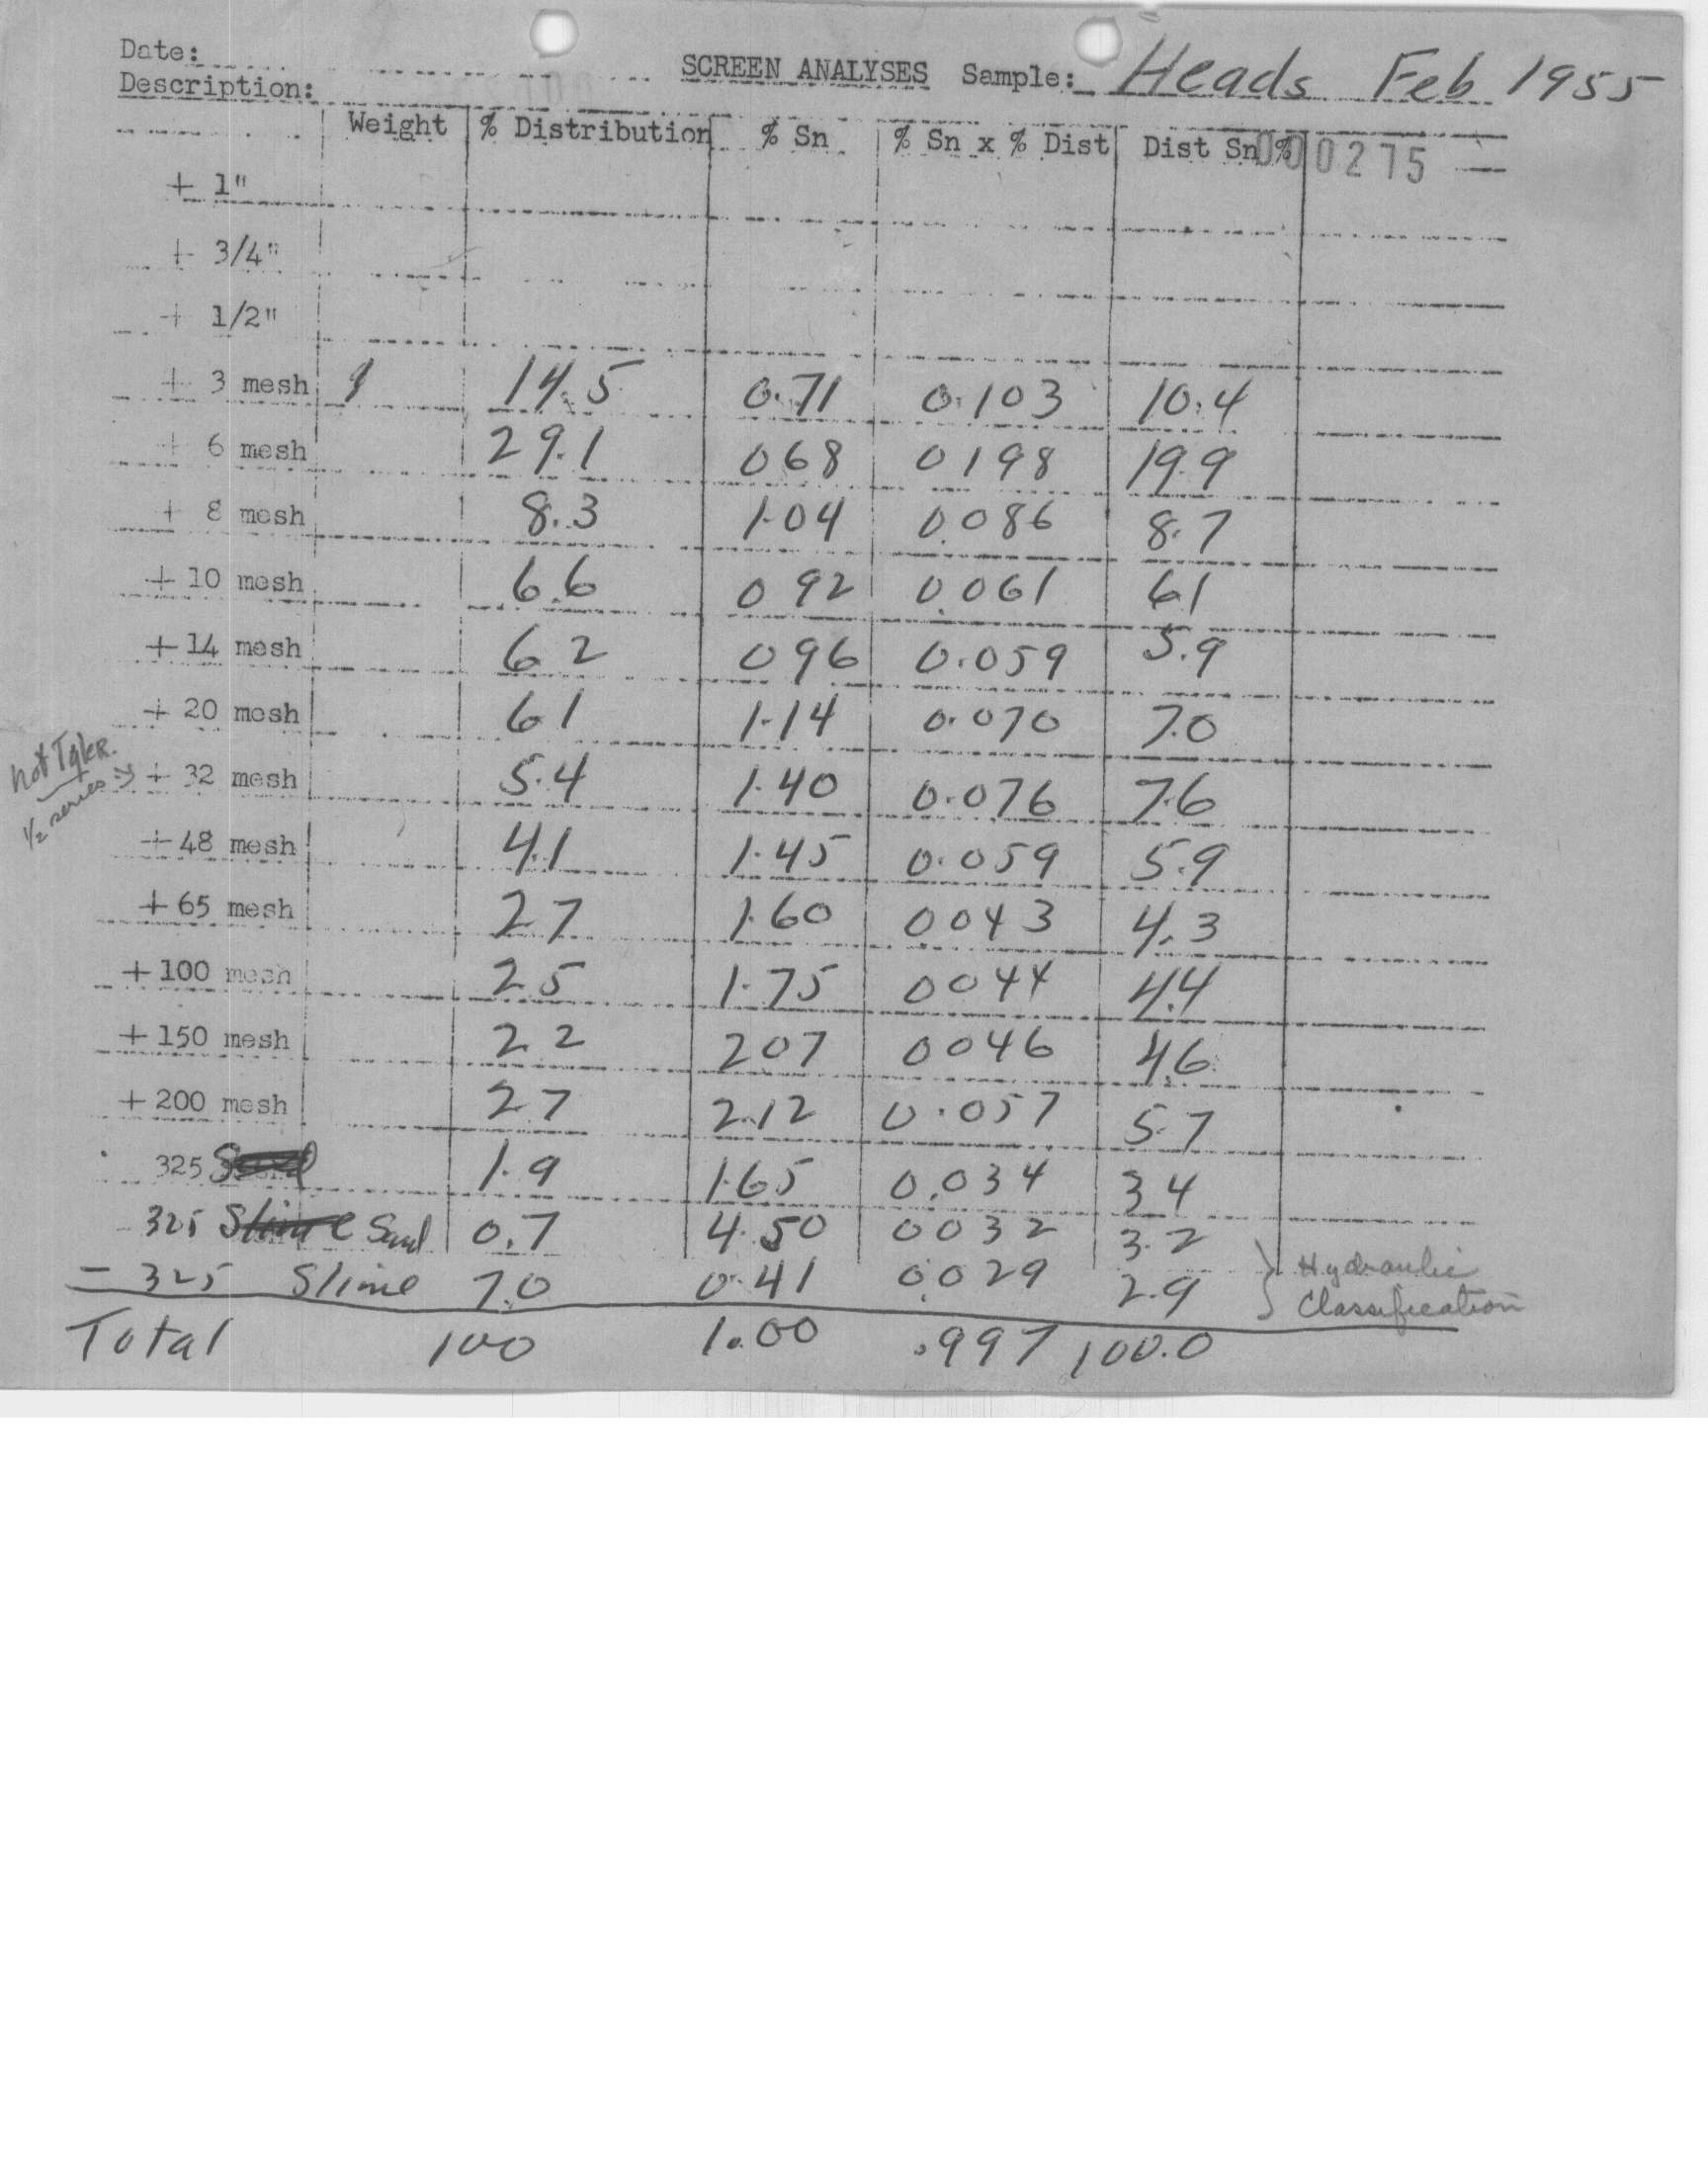 Date:
SCREEN ANALYSES Sample: Heads Feb 1955
Description:
Weight % Distribution % Sn % Sn x % Dist Dist Sn %
000275
+ 1"
+ 3/4"
+ 1/2"
+ 3 mesh 14.5 0.71 0.103 10.4
+ 6 mesh 29.1 068 0198 19.9
+ 8 mesh 8.3 1.04 0.086 8.7
+ 10 mesh 6.6 092 0.061 61
+ 14 mesh 62 096 0.059 5.9
+ 20 mesh 61 1.14 0.070 7.0
not Tyler.
1/2 series
+ 32 mesh 5.4 1.40 0.076 7.6
+ 48 mesh 4.1 1.45 0.059 5.9
+ 65 mesh 27 1.60 0043 4.3
+ 100 mesh 2.5 1.75 0044 4.4
+ 150 mesh 22 207 0046 4.6
+ 200 mesh 27 2.12 0.057 5.7
325 Sand 1.9 1.65 0.034 34
325 Slime Sand 0.7 4.50 0032 3.2
- 325 Slime 7.0 0.41 0.029 2.9
Hydraulic
Classification
Total 100 1.00 .997 100.0